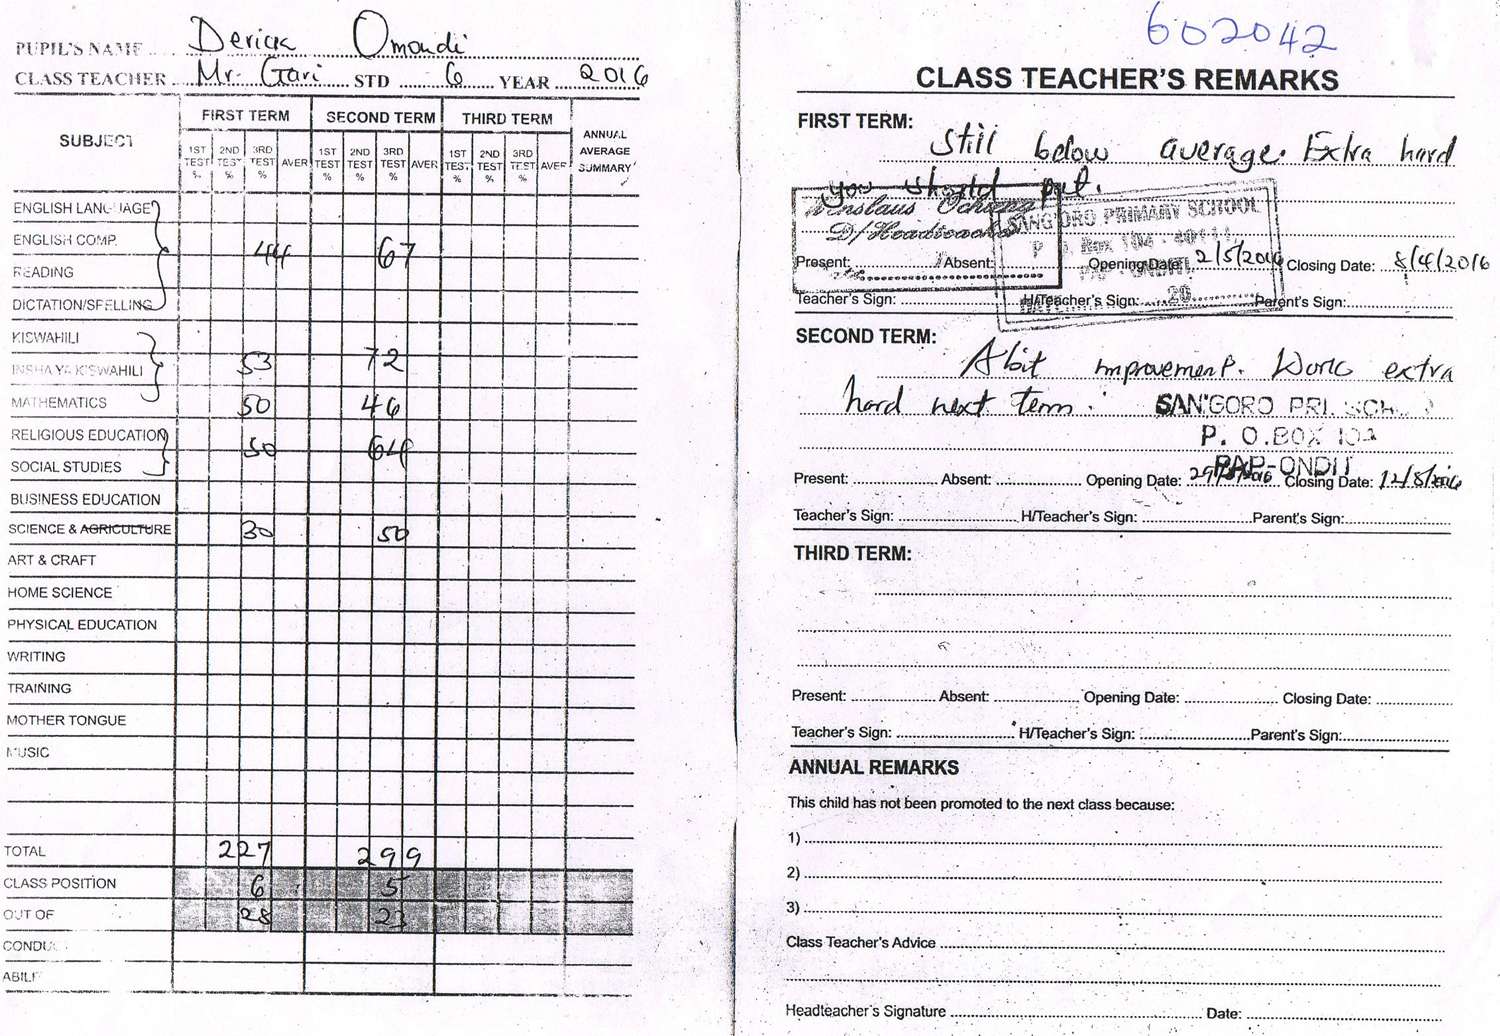 PUPIL'S NAME Derick Omondi
CLASS TEACHER Mr. Gari STD 6 YEAR 2016
SUBJECT FIRST TERM SECOND TERM THIRD TERM ANNUAL AVERAGE SUMMARY
1ST TEST % 2ND TEST % 3RD TEST % AVER 1ST TEST % 2ND TEST % 3RD TEST % AVER 1ST TEST % 2ND TEST % 3RD TEST % AVER
ENGLISH LANGUAGE
ENGLISH COMP. 44 67
READING
DICTATION/SPELLING
KISWAHILI
INSHA YA KISWAHILI 53 72
MATHEMATICS 50 46
RELIGIOUS EDUCATION 50 64
SOCIAL STUDIES
BUSINESS EDUCATION
SCIENCE & AGRICULTURE 30 50
ART & CRAFT
HOME SCIENCE
PHYSICAL EDUCATION
WRITING
TRAINING
MOTHER TONGUE
MUSIC
TOTAL 227 299
CLASS POSITION 6 5
OUT OF 28 23
CONDU
ABILI
602042
CLASS TEACHER'S REMARKS
FIRST TERM:
Still below average. Extra hard
you should put.
D/Headteacher
SANG'ORO PRIMARY SCHOOL
P. O. Box 104 - 40111,
Present: Absent: Opening Date: 2/5/2016 Closing Date: 8/4/2016
20
Teacher's Sign: H/Teacher's Sign: Parent's Sign:
SECOND TERM:
A bit improvement. Work extra
hard next term.
SAN'GORO PRI. SCH
P. O. BOX 104
PAP-ONDIT
Present: Absent: Opening Date: Closing Date: 12/8/2016
Teacher's Sign: H/Teacher's Sign: Parent's Sign:
THIRD TERM:
Present: Absent: Opening Date: Closing Date:
Teacher's Sign: H/Teacher's Sign: Parent's Sign:
ANNUAL REMARKS
This child has not been promoted to the next class because:
1)
2)
3)
Class Teacher's Advice
Headteacher's Signature Date: